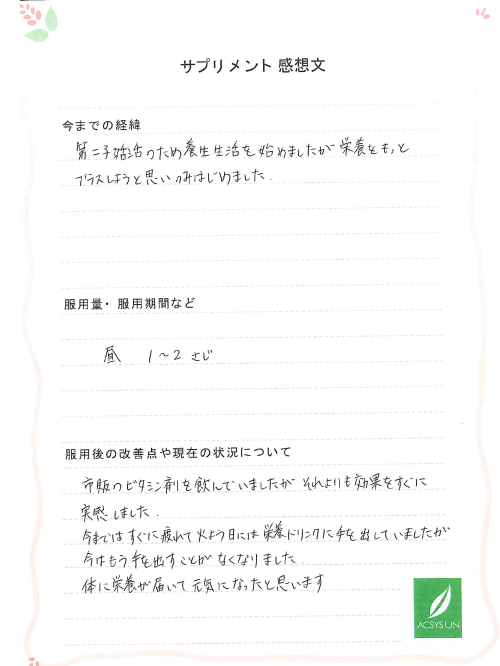 サプリメント 感想文
今までの経緯
第二子妊活のため養生生活を始めましたが栄養をもっと
プラスしようと思いのみはじめました.
服用量・服用期間など
昼 1～2 さじ
服用後の改善点や現在の状況について
市販のビタミン剤を飲んでいましたが それよりも効果をすぐに
実感しました.
今まではすぐに疲れて火よう日には栄養ドリンクに手を出していましたが
今はもう手を出すことがなくなりました.
体に栄養が届いて元気になったと思います
ACSYSUN